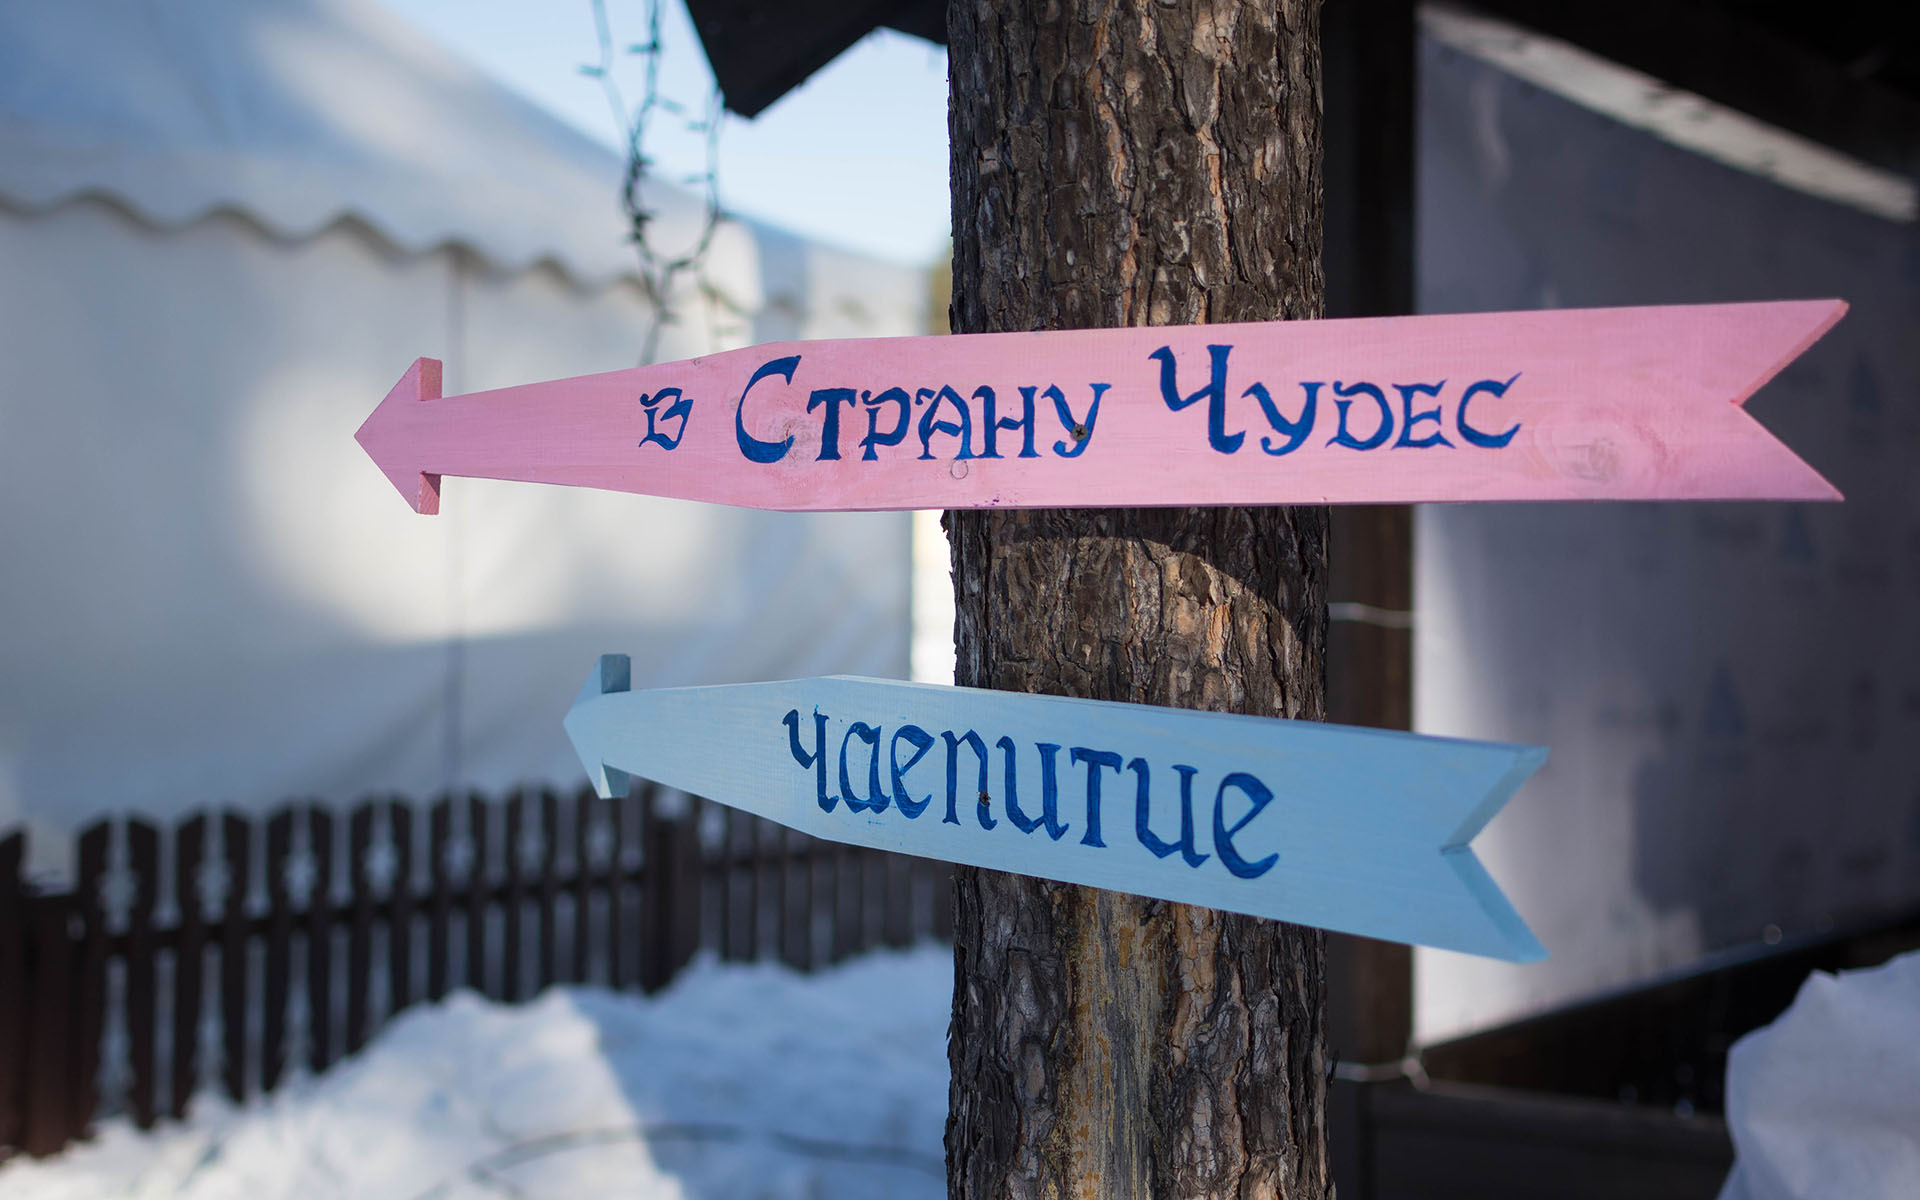 в Страну Чудес
чаепитие